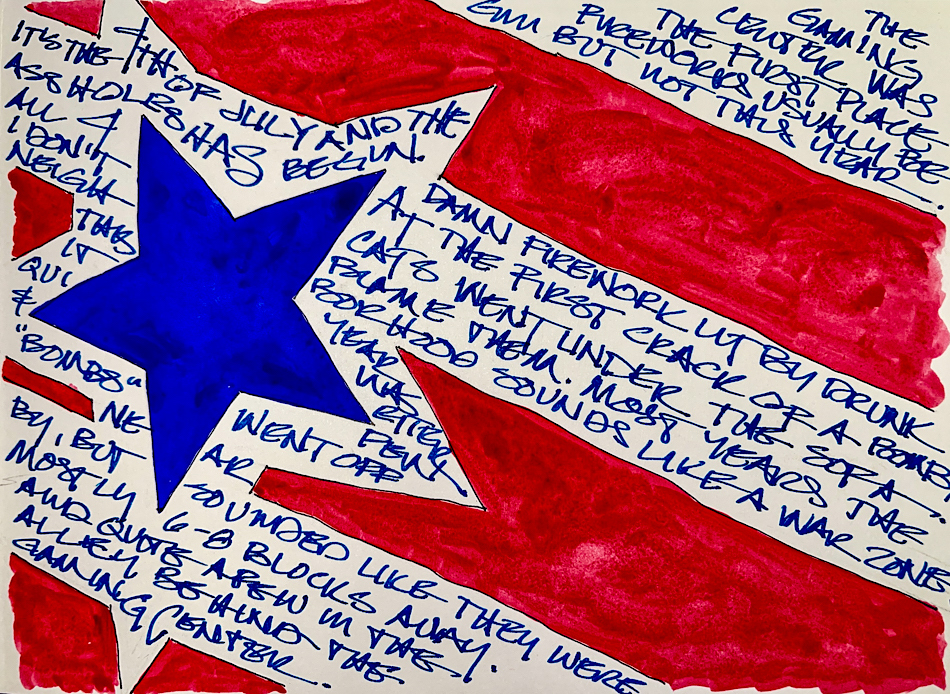 IT'S THE 4TH OF JULY AND THE DAMN FIREWORK LIT BY DRUNK
ASSHOLES HAS BEGUN. AT THE FIRST CRACK OF A BOMB
ALL 4 CATS WENT UNDER THE SOFA.
I DON'T BLAME THEM. MOST YEARS THE
NEIGH BORHOOD SOUNDS LIKE A WAR ZONE
THIS YEAR
IT WAS
QUI ETTER
& FEW
"BOMBS" WENT OFF
NE AR
BY, BUT SOUNDED LIKE THEY WERE
MOSTLY 6-8 BLOCKS AWAY.
AND QUITE A FEW IN THE
ALLEY BEHIND THE
GAMING CENTER.
THE
GAMING
CENTER WAS
THE FIRST PLACE
FIREWORKS USUALLY BE
BUT NOT THIS YEAR.